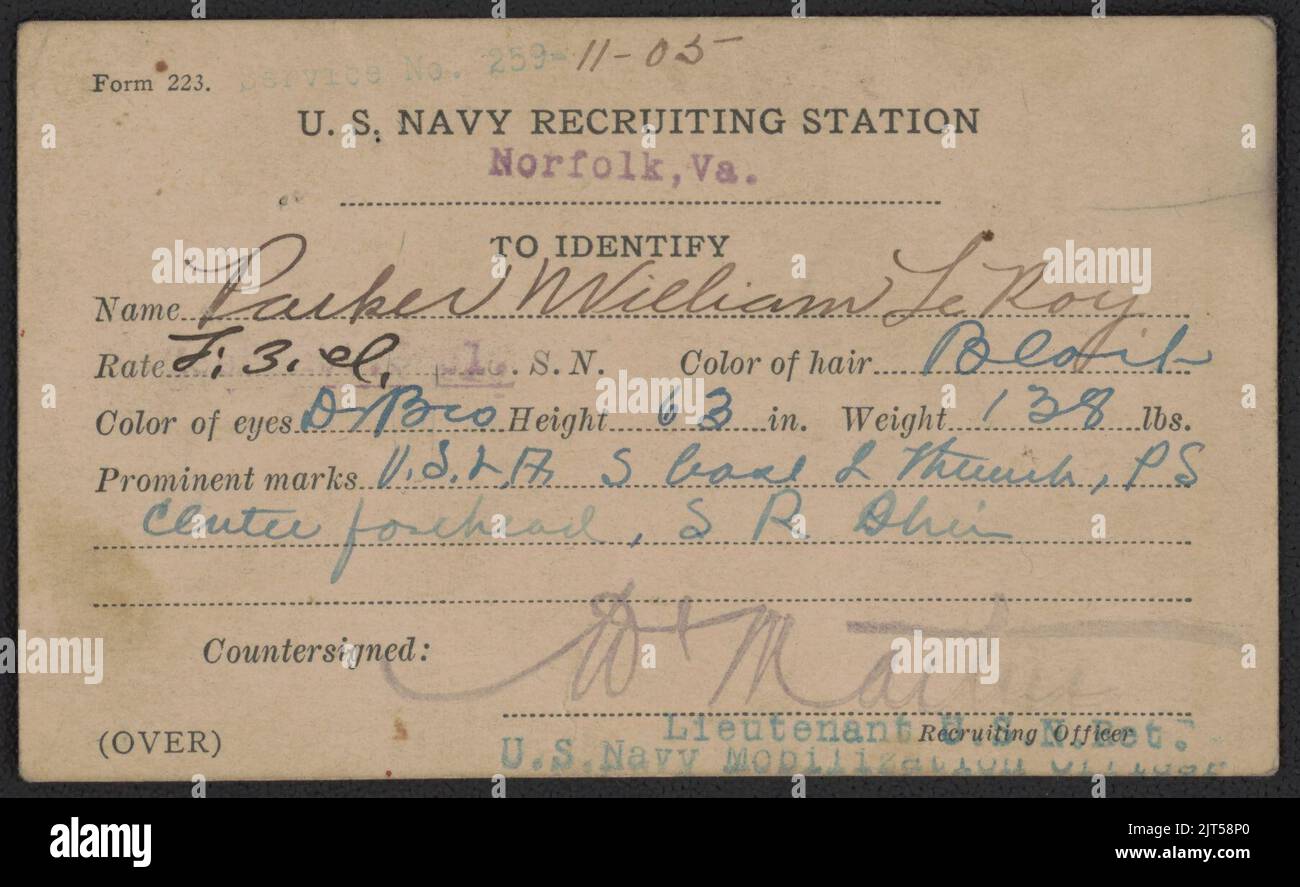 Service No. 259-11-05
Form 223.
U. S. NAVY RECRUITING STATION
Norfolk, Va.
TO IDENTIFY
Name Parker William Le Roy
Rate F. 3. cl. S. N. Color of hair Black
Color of eyes D Bro Height 63 in. Weight 138 lbs.
Prominent marks V.S.L.A. S base L thumb, PS
Center forehead, S R Shin
Countersigned:
Lieutenant U.S.N.Ret.
Recruiting Officer
U.S.Navy Mobilization Officer
(OVER)
alamy
a
alamy
Image ID: 2JT58P0
www.alamy.com